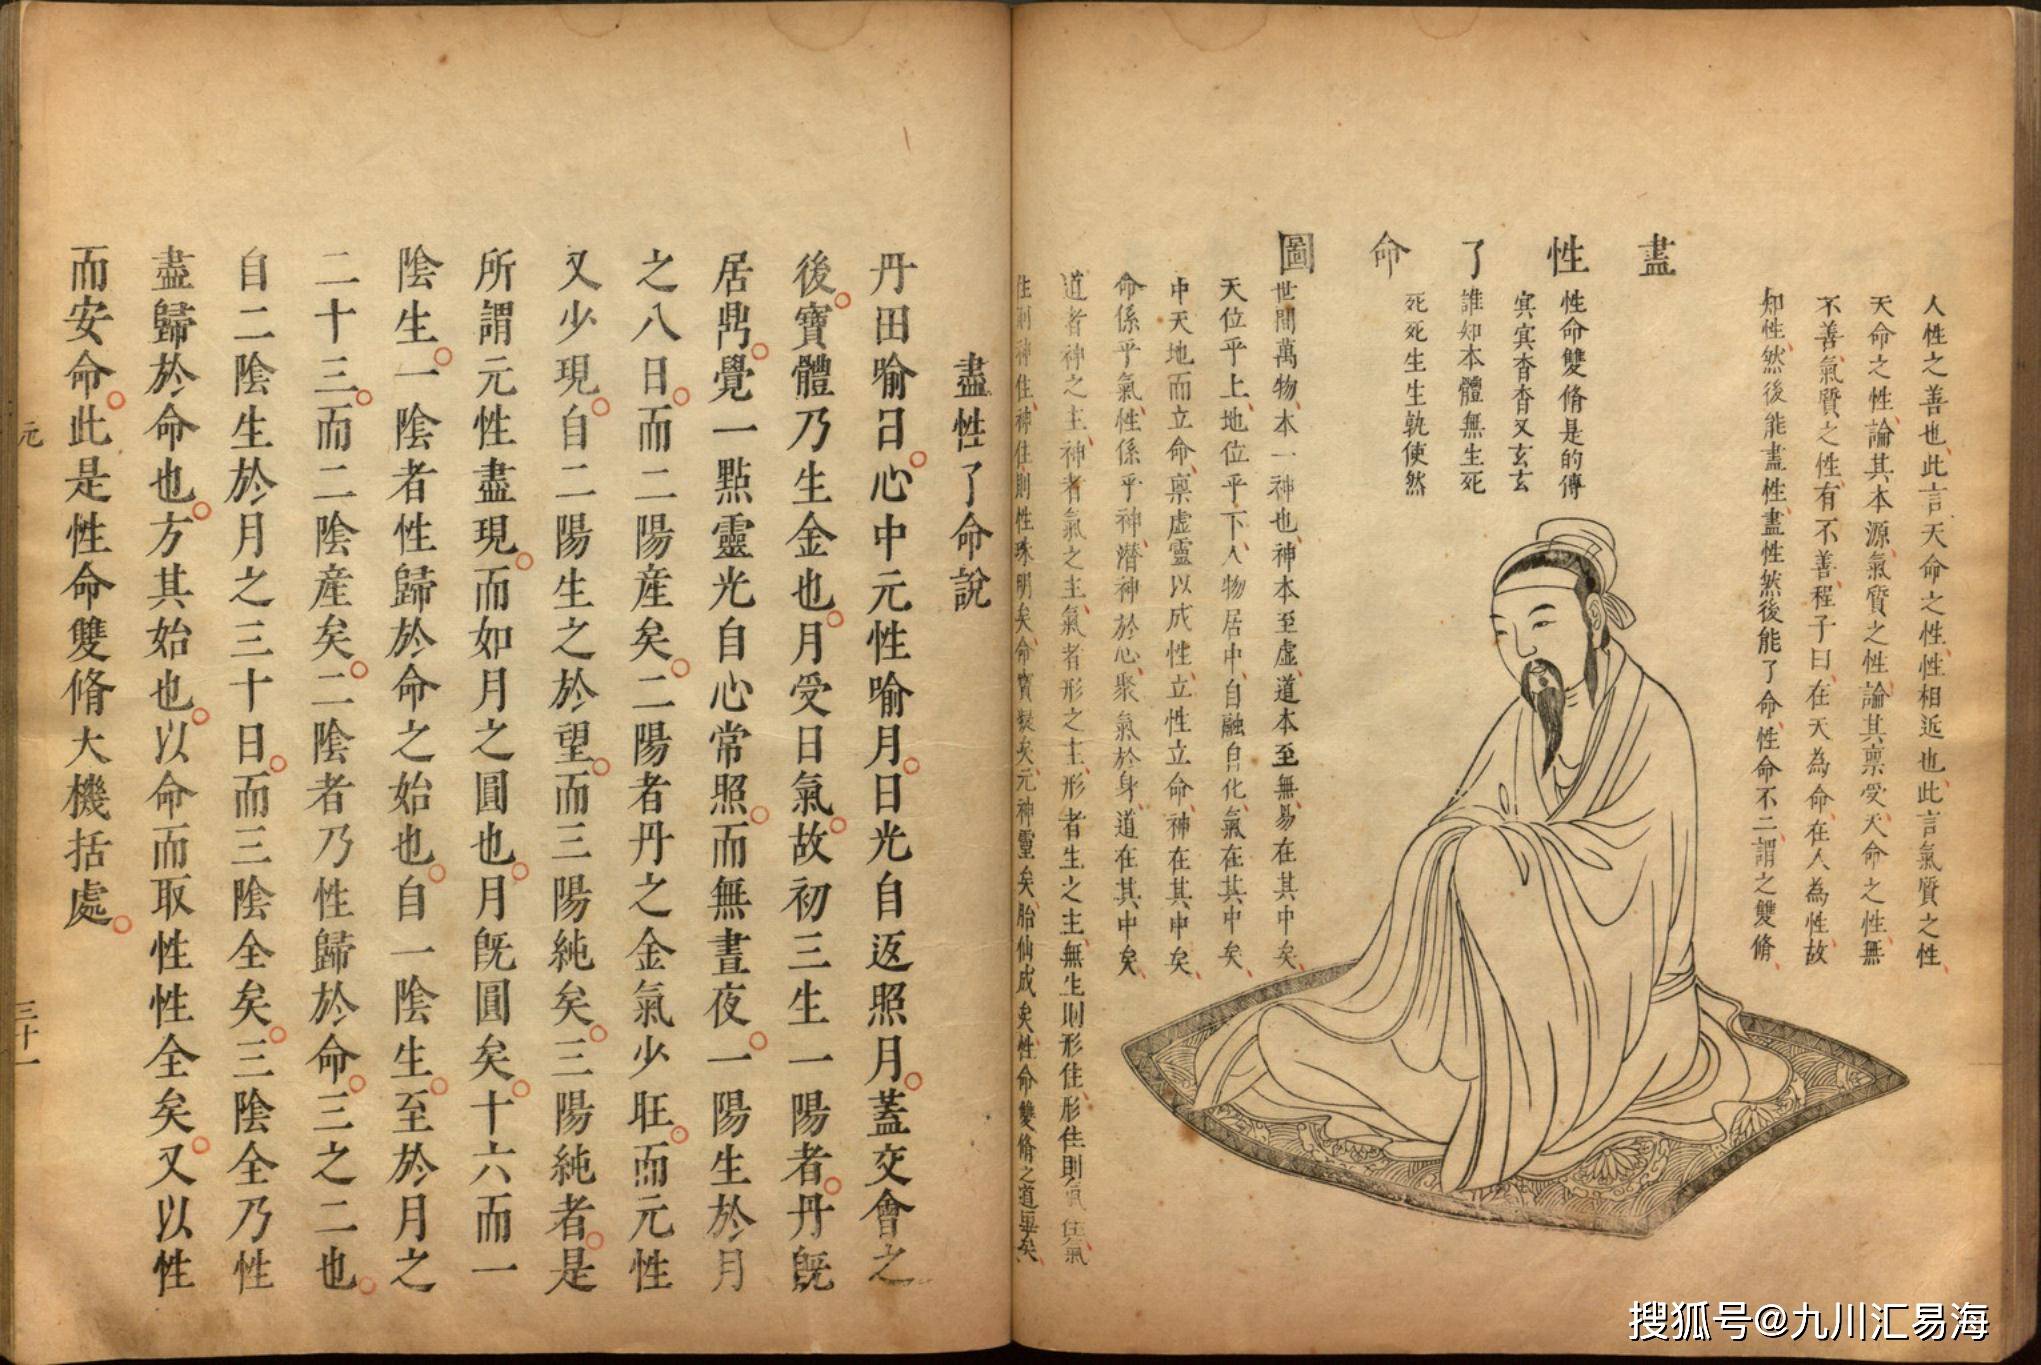 人性之善也此言天命之性性相近也此言氣質之性
天命之性論其本源氣質之性論其稟受天命之性無
不善氣質之性有不善程子曰在天為命在人為性故
知性然後能盡性盡性然後能了命性命不二謂之雙脩
盡性了命圖
性命雙脩是的傳
㝠㝠杳杳又玄玄
誰知本體無生死
死死生生孰使然
世間萬物本一神也神本至虛道本至無易在其中矣
天位乎上地位乎下人物居中自融自化氣在其中矣
中天地而立命稟虛靈以成性立性立命神在其中矣
命係乎氣性係乎神潛神於心聚氣於身道在其中矣
道者神之主神者氣之主氣者形之主形者生之主無生則形住形住則氣住氣
住則神住神住則性珠明矣命寶凝矣元神靈矣胎仙成矣性命雙脩之道畢矣
盡性了命說
丹田喻日心中元性喻月日光自返照月蓋交會之
後寶體乃生金也月受日氣故初三生一陽者丹既
居鼎覺一點靈光自心常照而無晝夜一陽生於月
之八日而二陽産矣二陽者丹之金氣少旺而元性
又少現自二陽生之於望而三陽純矣三陽純者是
所謂元性盡現而如月之圓也月既圓矣十六而一
陰生一陰者性歸於命之始也自一陰生至於月之
二十三而二陰産矣二陰者乃性歸於命三之二也
自二陰生於月之三十日而三陰全矣三陰全乃性
盡歸於命也方其始也以命而取性性全矣又以性
而安命此是性命雙脩大機括處
元
三十一
搜狐号@九川汇易海